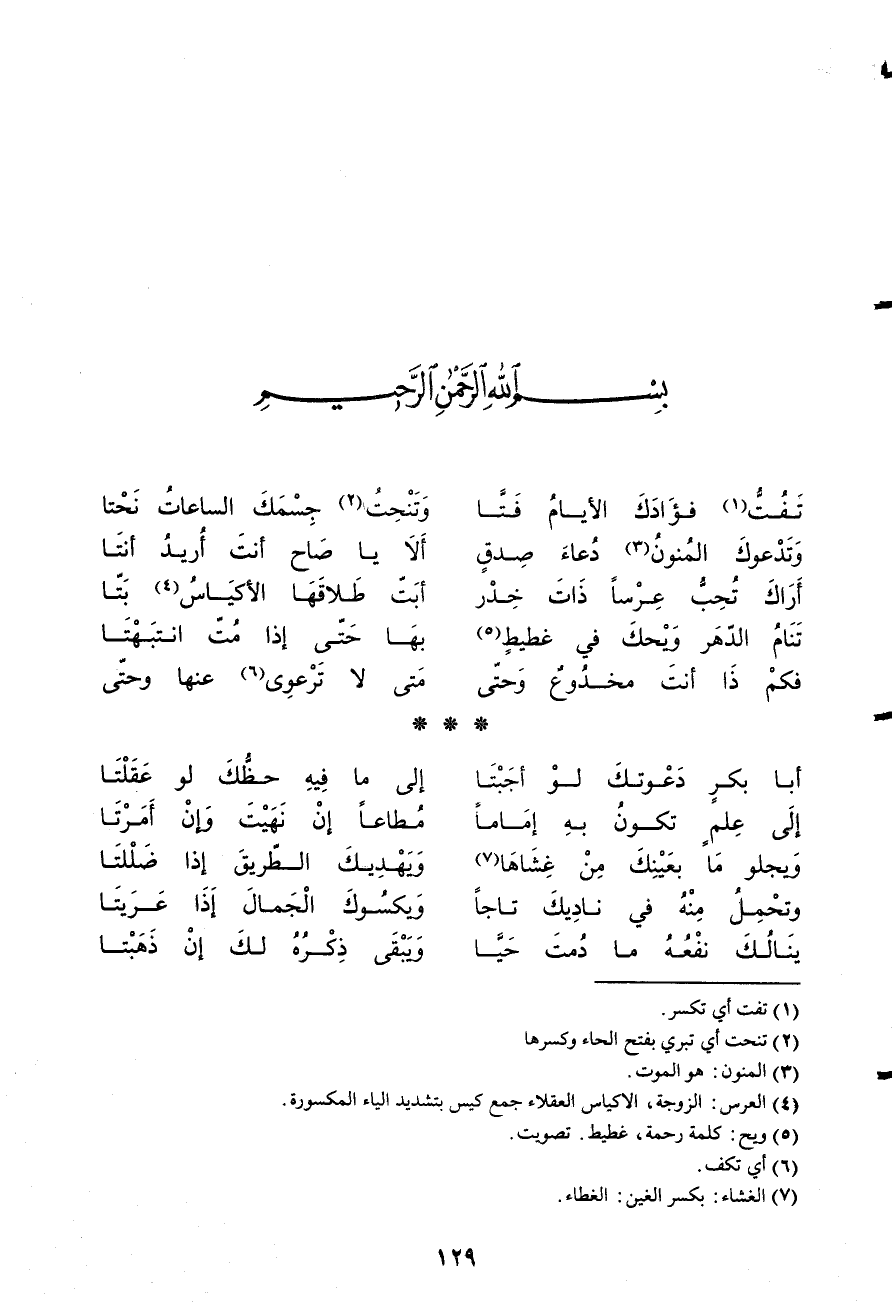 بِسْمِ اللهِ الرَّحْمٰنِ الرَّحِيمِ
تَـفُـتُّ(١) فـؤَادَكَ الأيـامُ فَـتَّـا وَتَنْحِتُ(٢) جِسْمَكَ الساعاتُ نَحْتا
وَتَدْعوكَ المُنونُ(٣) دُعاءَ صِـدقٍ أَلَا يـا صَاحِ أنتَ أُريـدُ أنتَـا
أَرَاكَ تُحِبُّ عِـرْساً ذَاتَ خِـدْرٍ أبَتّ طَـلاقَهَـا الأكيَـاسُ(٤) بَتّا
تَنَامُ الدّهَر وَيْحكَ في غطيطٍ(٥) بهَـا حَتّـى إذا مُتّ انـتبَـهْتَـا
فكمْ ذَا أنتَ مخـدُوعٌ وَحتّى مَتى لا تَرْعوِى(٦) عنها وحتّى
* * *
أبـا بكـرٍ دَعْوتـكَ لـوْ أجَبْتَـا إلى ما فِيهِ حـظُّكَ لو عَقَلْتَـا
إلَى عِلمٍ تكـونُ بـهِ إمَـامـاً مُـطاعـاً إنْ نَهَيْتَ وَإنْ أَمَـرْتَـا
وَيجلو مَا بعَيْنِكَ مِنْ غِشَاهَا(٧) وَيَهْـدِيـكَ الـطّريقَ إذا ضَلْلتَـا
وتحْمِـلُ مِنْهُ في نـادِيكَ تـاجاً وَيكسُـوكَ الْجَمـالَ إذَا عَـرَيتَـا
يَنَـالُـكَ نفْعُـهُ مـا دُمتَ حَيَّـا وَيَبْقَى ذِكْـرُهُ لـكَ إنْ ذَهَبْتـا
(١) تفت أي تكسر.
(٢) تنحت أي تبري بفتح الحاء وكسرها
(٣) المنون: هو الموت.
(٤) العرس: الزوجة، الاكياس العقلاء جمع كيس بتشديد الياء المكسورة.
(٥) ويح: كلمة رحمة، غطيط. تصويت.
(٦) أي تكف.
(٧) الغشاء: بكسر الغين: الغطاء.
١٢٩